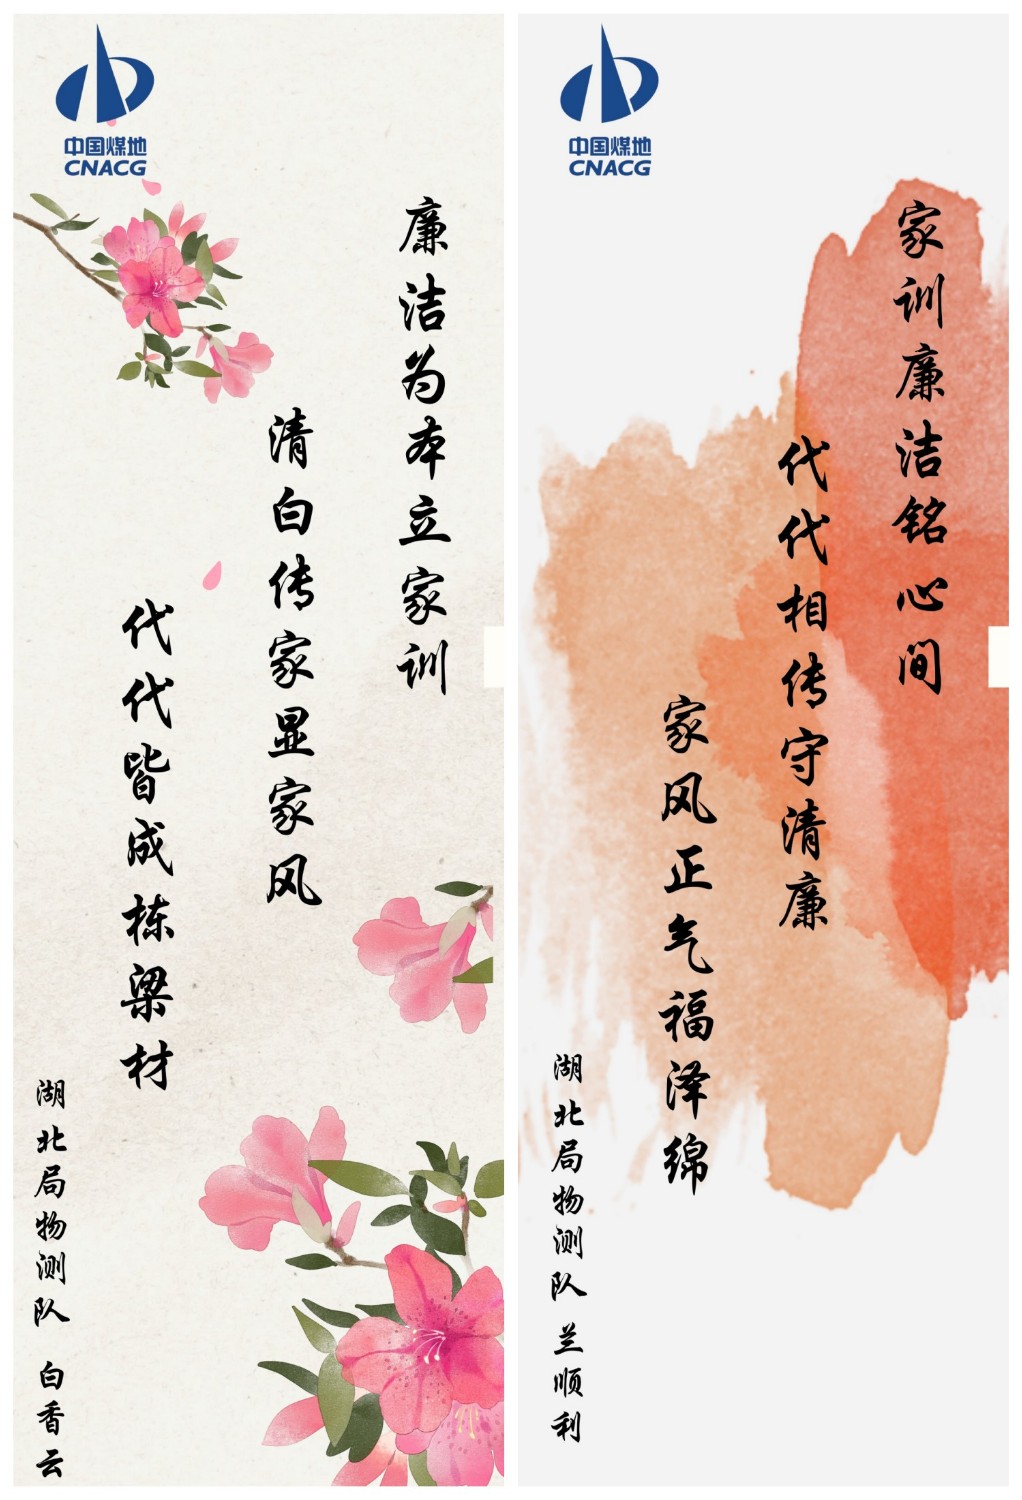 中国煤地
CNACG
廉洁为本立家训
清白传家显家风
代代皆成栋梁材
湖北局物测队 白香云
中国煤地
CNACG
家训廉洁铭心间
代代相传守清廉
家风正气福泽绵
湖北局物测队 兰顺利